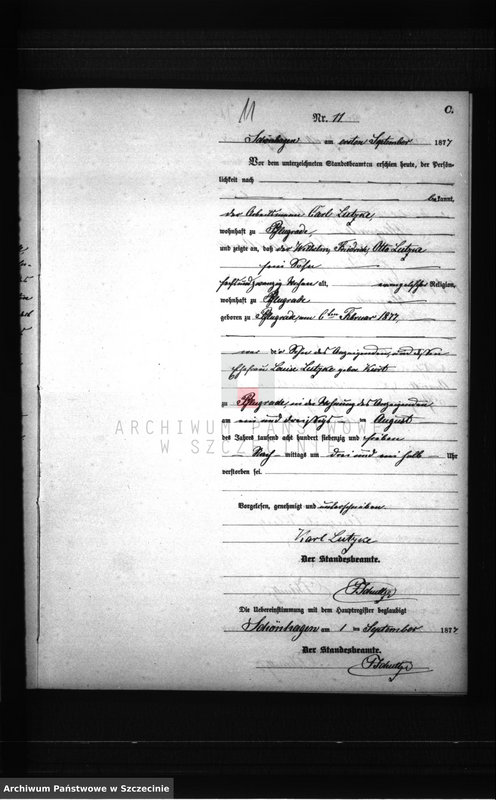 11
C.
Nr. 11
Schönhagen am ersten September 1877
Vor dem unterzeichneten Standesbeamten erschien heute, der Persönlichkeit nach
bekannt,
der Arbeitsmann Carl Lutzke,
wohnhaft zu Pflugrade,
und zeigte an, daß der Wilhelm, Friedrich, Otto Lutzke
sein Sohn
sechsundzwanzig Wochen alt, evangelischer Religion,
wohnhaft zu Pflugrade
geboren zu Pflugrade, am 6ten Februar 1877,
war der Sohn des Anzeigenden, und dessen
Ehefrau Louise Lutzke geborene
zu Pflugrade, in der Wohnung des Anzeigenden
am ein und dreißigsten August
des Jahres tausend acht hundert siebenzig und sieben
Nach mittags um drei und ein halb Uhr
verstorben sei.
Vorgelesen, genehmigt und unterschrieben
Karl Lutzke
Der Standesbeamte.
Die Uebereinstimmung mit dem Hauptregister beglaubigt
Schönhagen am 1 ten September 1877
Der Standesbeamte.
ARCHIWUM PAŃSTWOWE
W SZCZECINIE
Archiwum Państwowe w Szczecinie